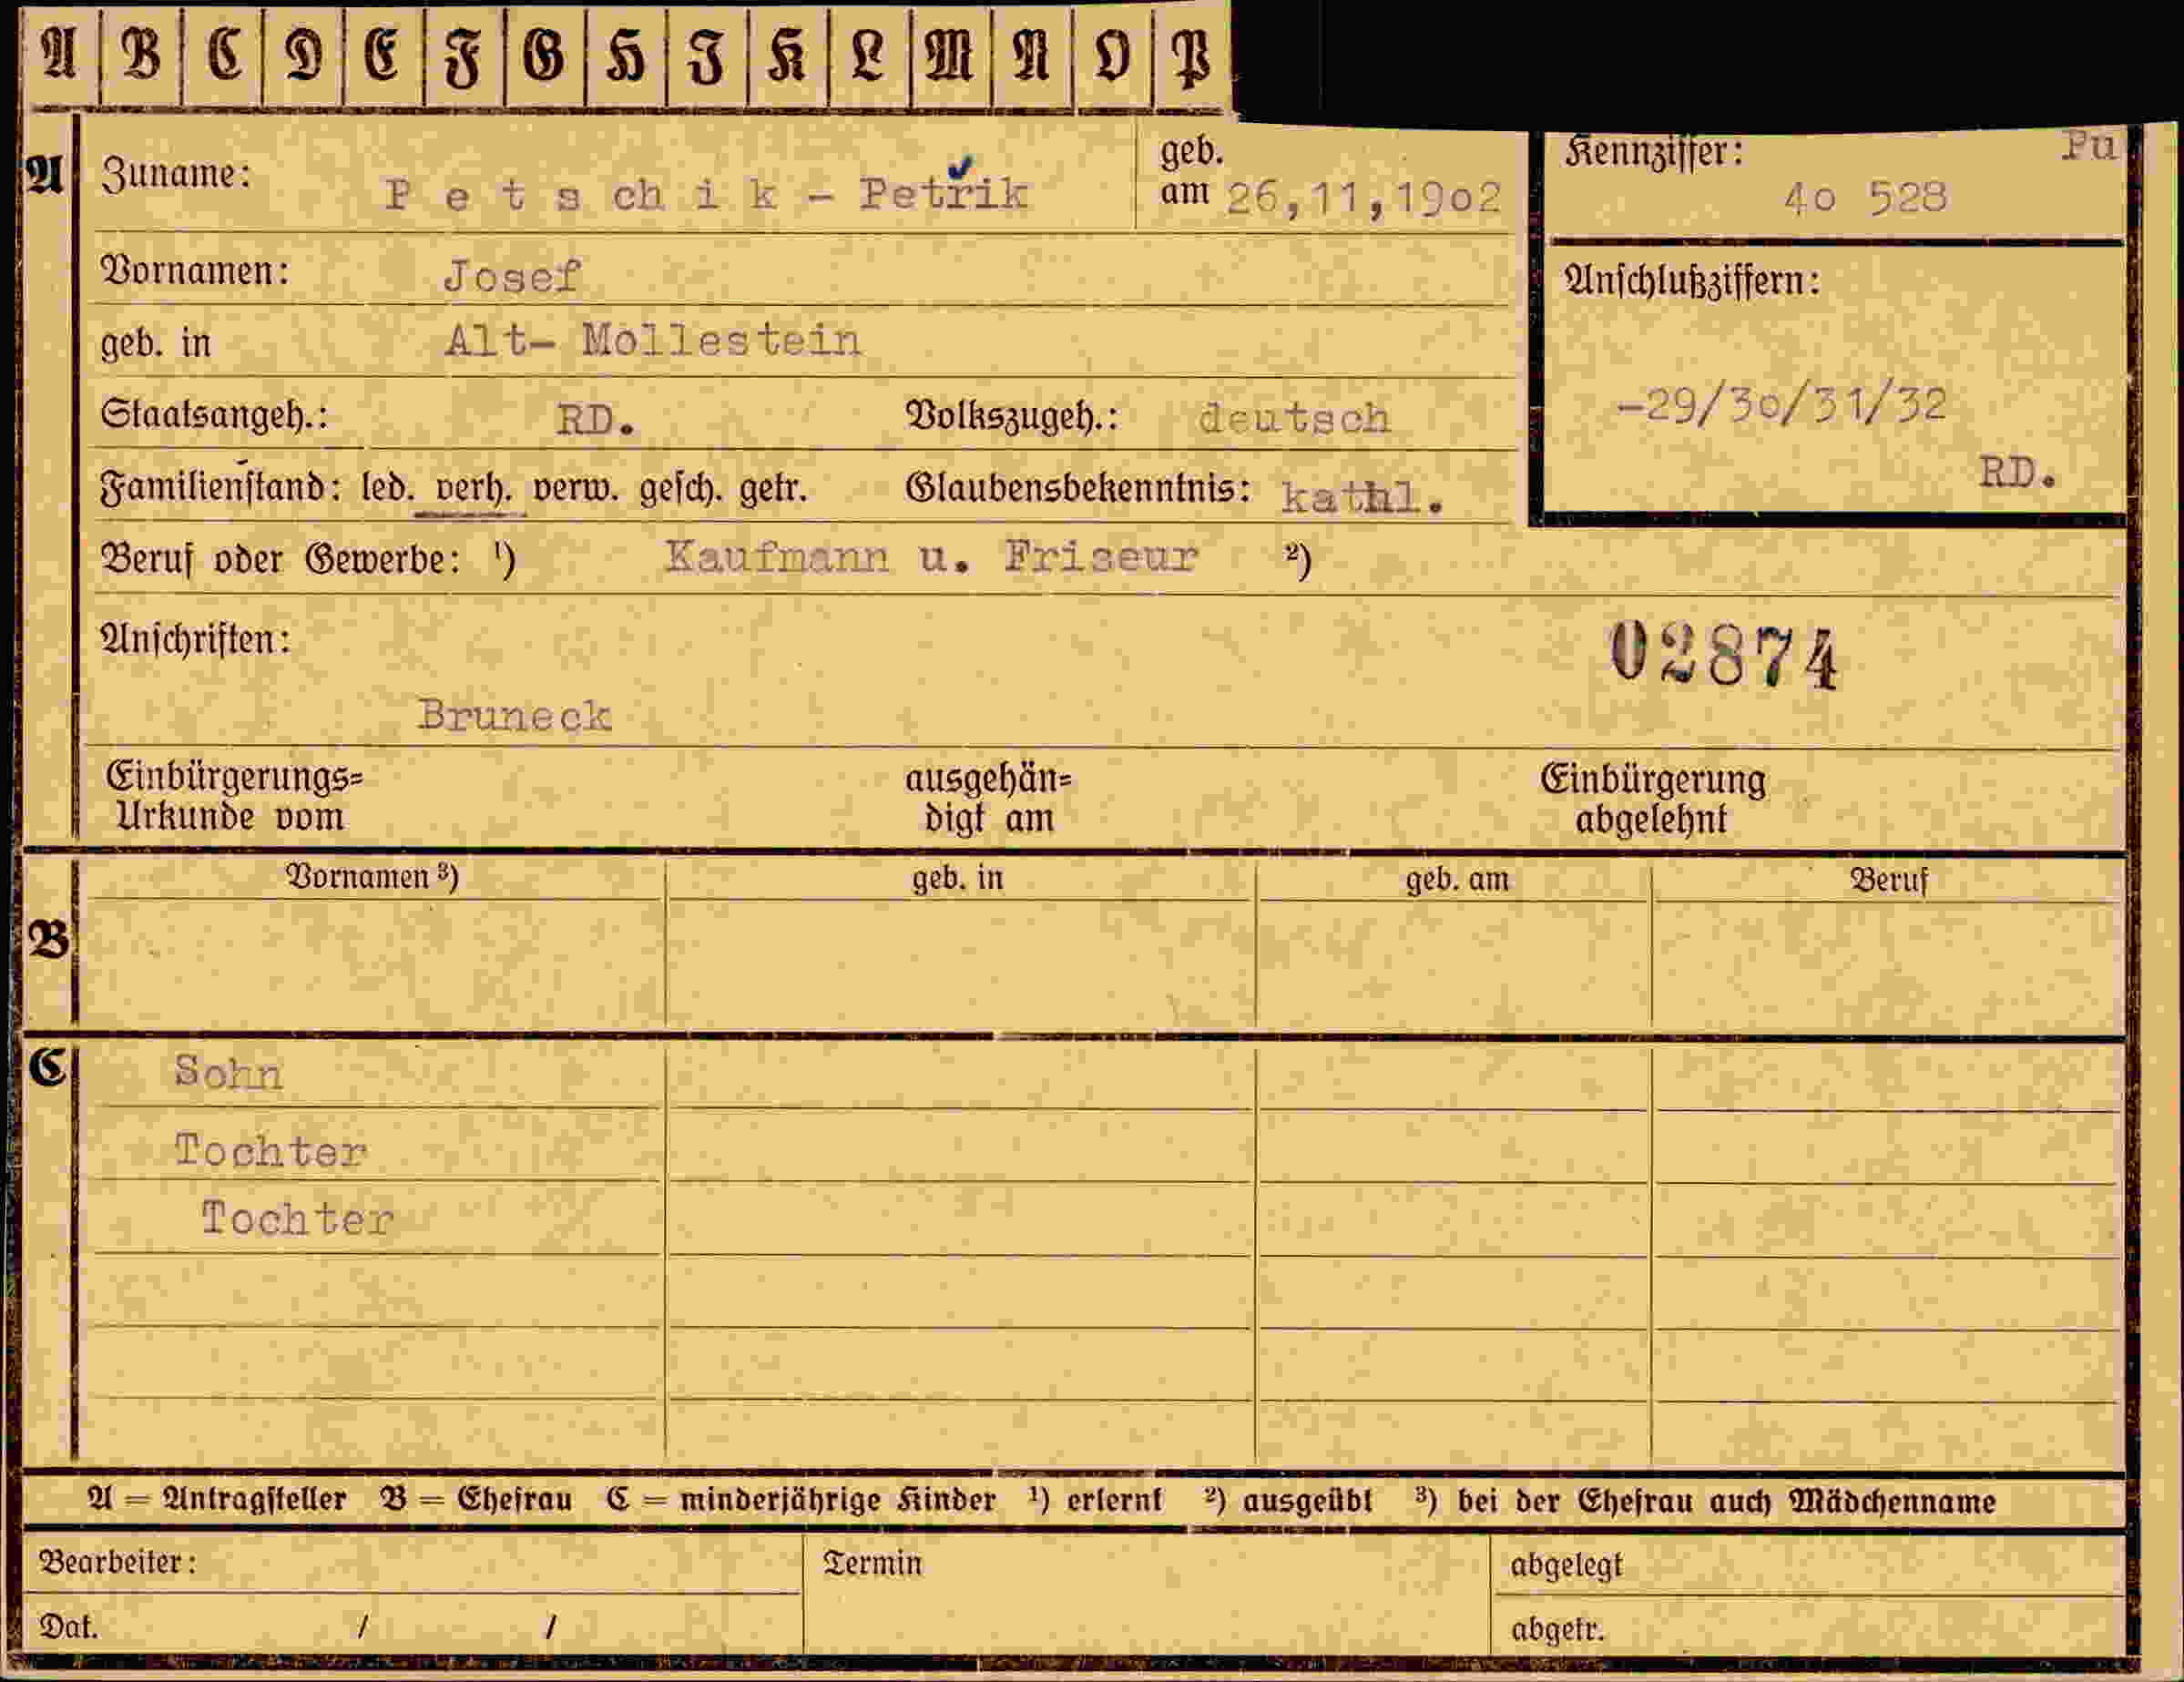 A B C D E F G H I K L M N O P
A Zuname: Petschik - Petřik geb. am 26,11,19o2
Kennziffer: Pu
4o 528
Vornamen: Josef
Anschlußziffern:
geb. in Alt- Mollestein
-29/3o/31/32
Staatsangeh.: RD. Volkszugeh.: deutsch
RD.
Familienstand: led. verh. verw. gesch. getr. Glaubensbekenntnis: kathl.
Beruf oder Gewerbe: ¹) Kaufmann u. Friseur ²)
Anschriften:
02874
Bruneck
Einbürgerungs= ausgehän= Einbürgerung
Urkunde vom digt am abgelehnt
B Vornamen ³) geb. in geb. am Beruf
C Sohn
Tochter
Tochter
A = Antragsteller B = Ehefrau C = minderjährige Kinder ¹) erlernt ²) ausgeübt ³) bei der Ehefrau auch Mädchenname
Bearbeiter: Termin abgelegt
Dat. / / abgetr.